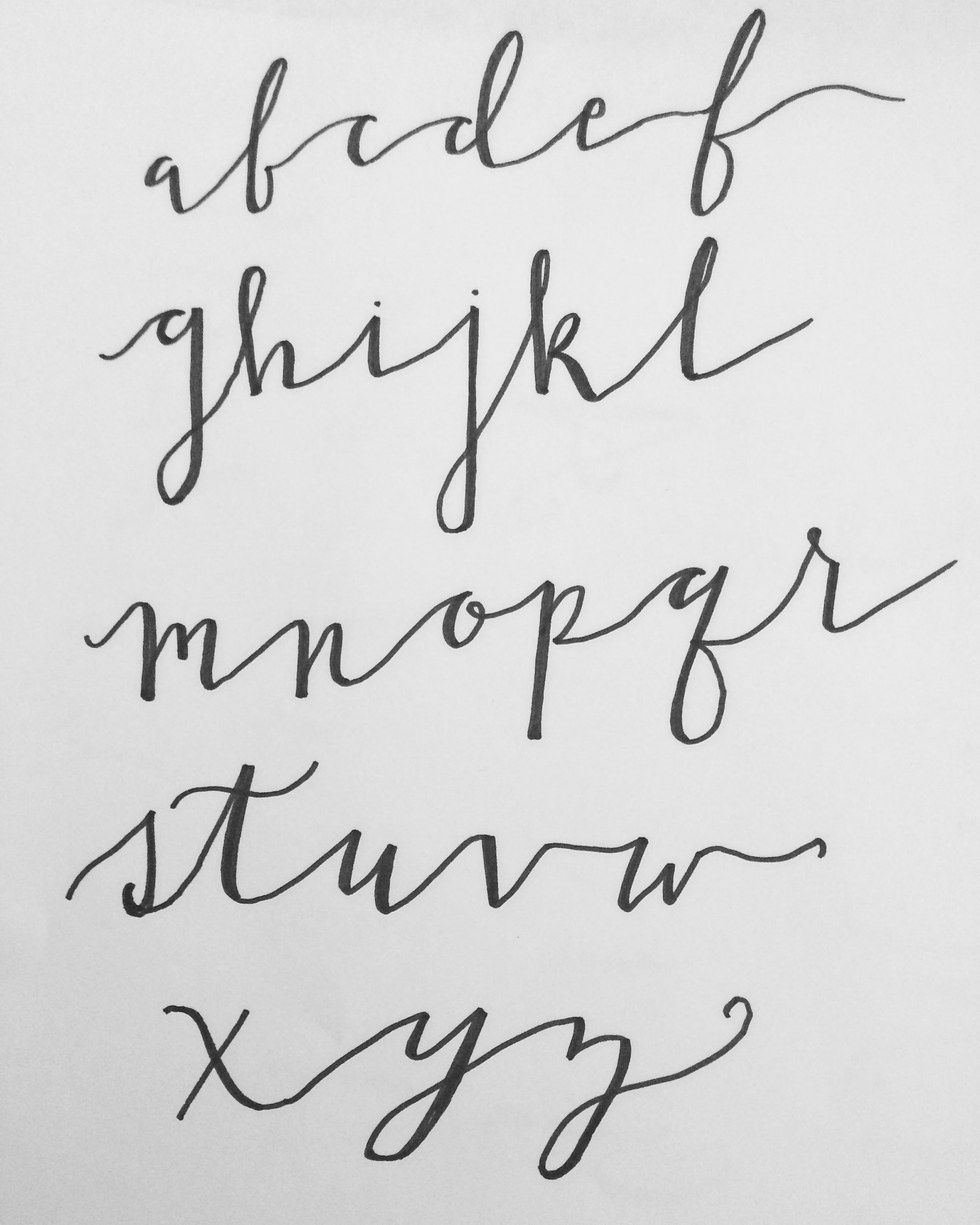 abcdef
ghijkl
mnopqr
stuvw
xyz